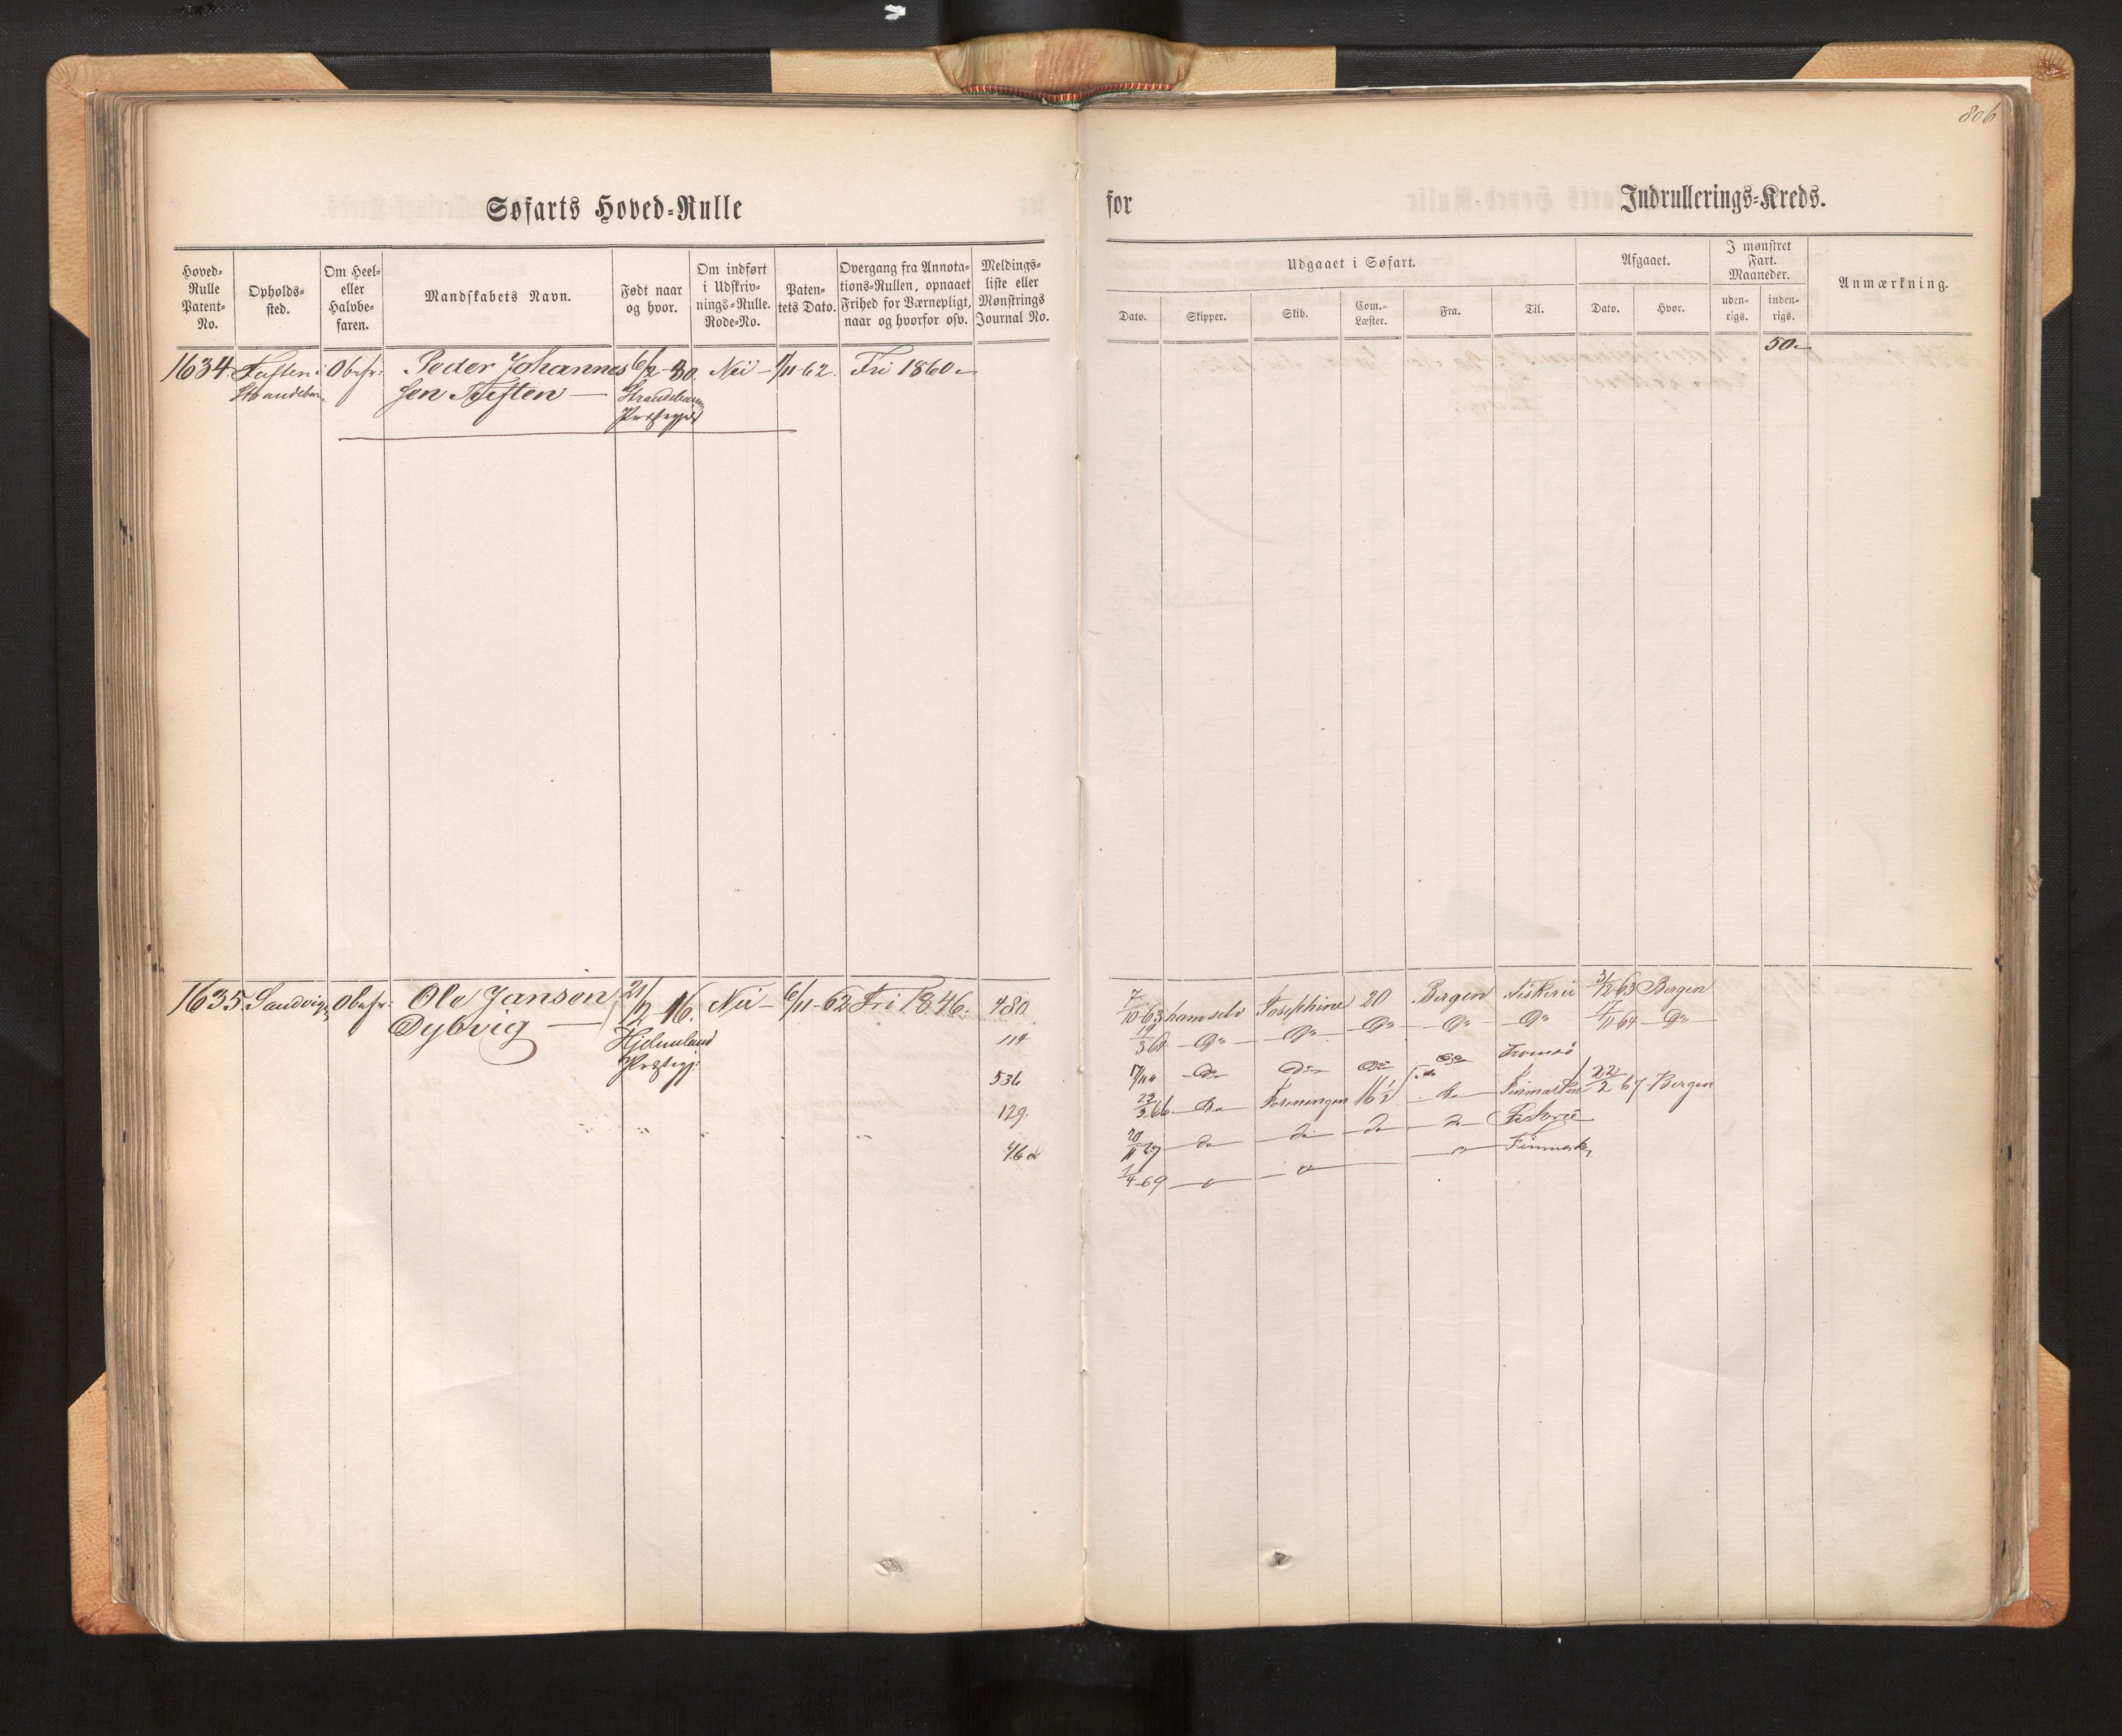 806
Søfarts Hoved-Rulle for Indrullerings-Kreds.
Hoved-Rulle Patent-No.
Opholds-sted.
Om Heel- eller Halvbe-faren.
Mandskabets Navn.
Født naar og hvor.
Om indført i Udskriv-nings-Rulle. Rode-No.
Paten-tets Dato.
Overgang fra Annota-tions-Rullen, opnaaet Frihed for Værnepligt, naar og hvorfor osv.
Meldings-liste eller Mønstrings Journal No.
Udgaaet i Søfart.
Dato. Skipper. Skib. Com.-Læster. Fra. Til.
Afgaaet.
Dato. Hvor.
I mønstret Fart. Maaneder.
uden-rigs. inden-rigs.
Anmærkning.
1634. Obefr: Peder Johannes 6/2-30. Nei - /11-62. Fri 1860 50
Strandebar. sen Strandebarm
Præstegjeld
1635. Sandvig, Obefr: Ole Janson 21/12 16. Nei - 6/11-62 Fri 1846. 480 7/10 63 ham selv Josephine 20 Bergen Fiskerie 31/12 63 Bergen
Dybvig Hjelmeland 114 19/3 64 - Do - Do - Do - Do - Do 17/11 64 - Do
Præstegj. 536 Do Do Do Do Tromsö
129. 23/3 66 - Do Foreningen 16 1/2 do Finmarken 22/2 67 Bergen
468 20/11 67 do do do do
1/4 69 Finmarken